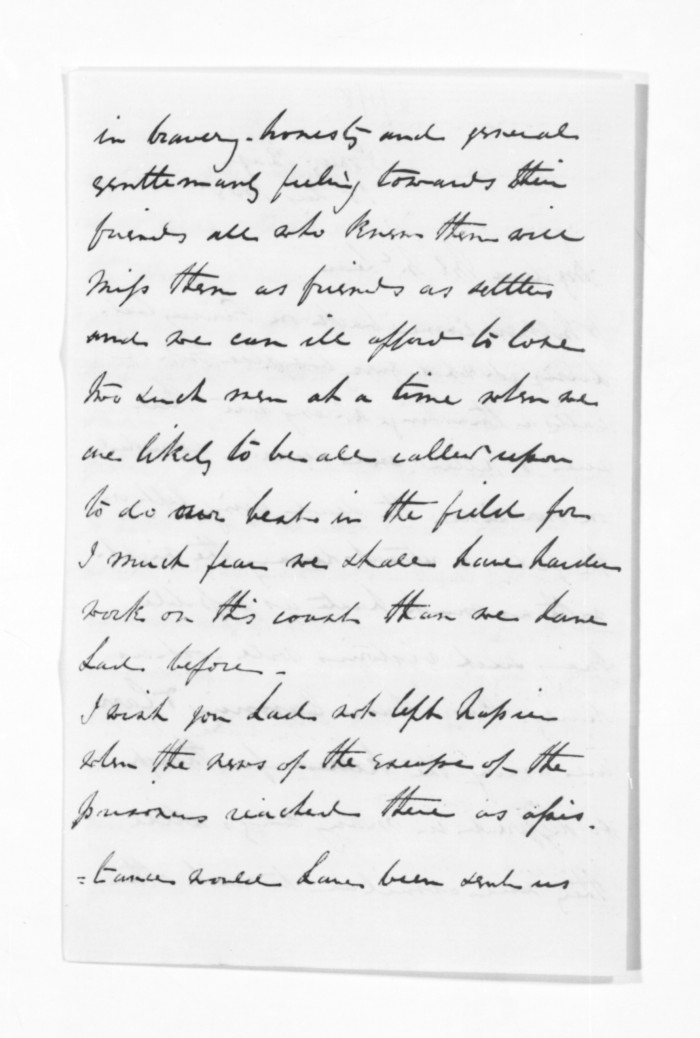 in bravery - honesty and general
gentlemanly feeling towards their
friends all who knew them will
miss them as friends as settlers
and we can ill afford to lose
two such men at a time when we
are likely to be all called upon
to do our best in the field for
I much fear we shall have harder
work on this coast than we have
had before -
I wish you had not left Napier
when the news of the escape of the
prisoners reached there as assis-
=tance would have been sent us